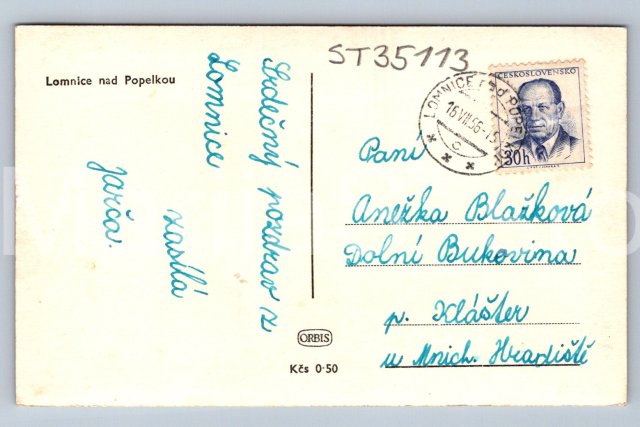 ST35113
Lomnice nad Popelkou
Srdečný pozdrav z
Lomnice
zasílá
Jarča.
ČESKOSLOVENSKO
30h
LOMNICE nad POPELKOU
16.VII.56-15
C
Paní
Anežka Blažková
Dolní Bukovina
p. Klášter
u Mnich. Hradiště
ORBIS
Kčs 0·50